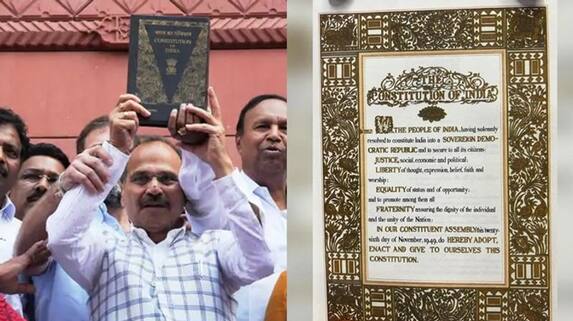 भारत का संविधान
CONSTITUTION
OF
INDIA
THE
CONSTITUTION OF INDIA
WE, THE PEOPLE OF INDIA, having solemnly
resolved to constitute India into a SOVEREIGN DEMO-
CRATIC REPUBLIC and to secure to all its citizens:
JUSTICE, social, economic and political;
LIBERTY of thought, expression, belief, faith and
worship;
EQUALITY of status and of opportunity;
and to promote among them all
FRATERNITY assuring the dignity of the individual
and the unity of the Nation;
IN OUR CONSTITUENT ASSEMBLY this twenty-
sixth day of November, 1949, do HEREBY ADOPT,
ENACT AND GIVE TO OURSELVES THIS
CONSTITUTION.